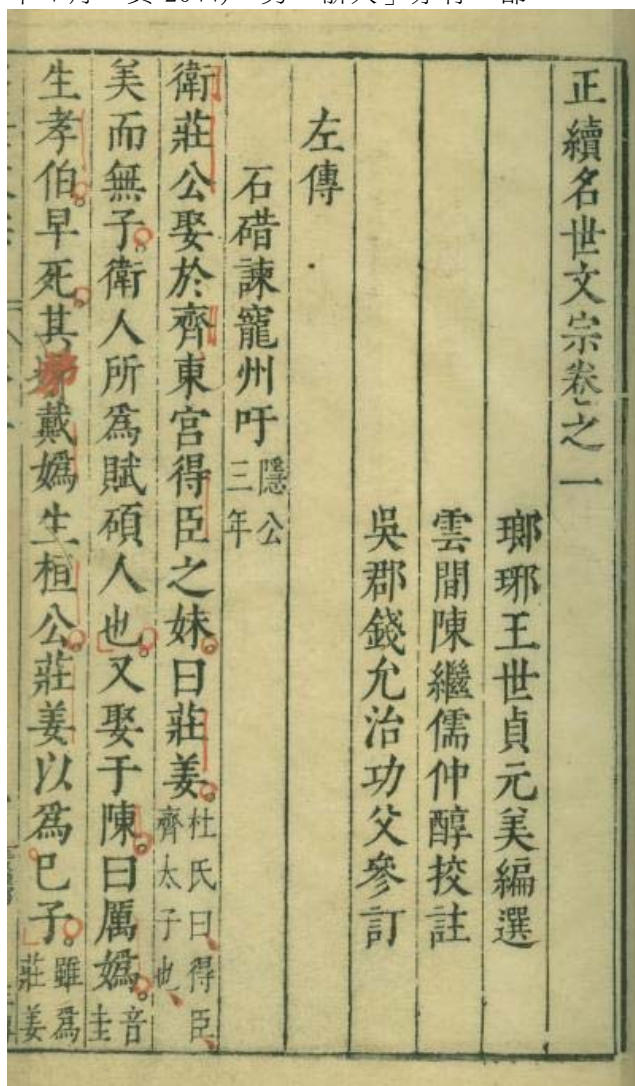 正續名世文宗卷之一
瑯琊王世貞元美編選
雲間陳繼儒仲醇挍註
吳郡錢允治功父參訂
左傳
石碏諫寵州吁隱公三年
衛莊公娶於齊東宮得臣之妹曰莊姜杜氏曰得臣齊太子也
美而無子衛人所為賦碩人也又娶于陳曰厲嬀音圭
生孝伯早死其娣戴嬀生桓公莊姜以為己子雖為莊姜